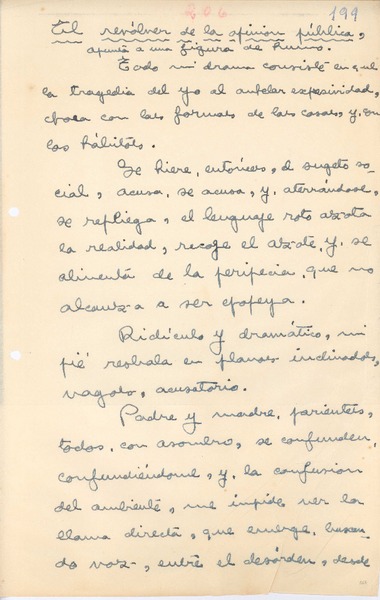 206 199
El revólver de la opinión pública,
apunta a una figura de humo.
Todo mi drama consiste en que
la tragedia del yo al anhelar expresividad,
choca con las formas de las cosas, y, con
los hábitos.
Se hiere, entonces, el sujeto so-
cial, acusa, se acusa, y, aterrándose,
se repliega, el lenguaje roto azota
la realidad, recoge el azote, y, se
alimenta de la peripecia, que no
alcanza a ser epopeya.
Ridículo y dramático, mi
pié resbala en planos inclinados,
vagos, acusatorio.
Padre y madre, parientes,
todos, con asombro, se confunden,
confundiéndome, y, la confusion
del ambiente, me impide ver la
llama directa, que emerge, buscan-
do voz, entre el desórden, desde